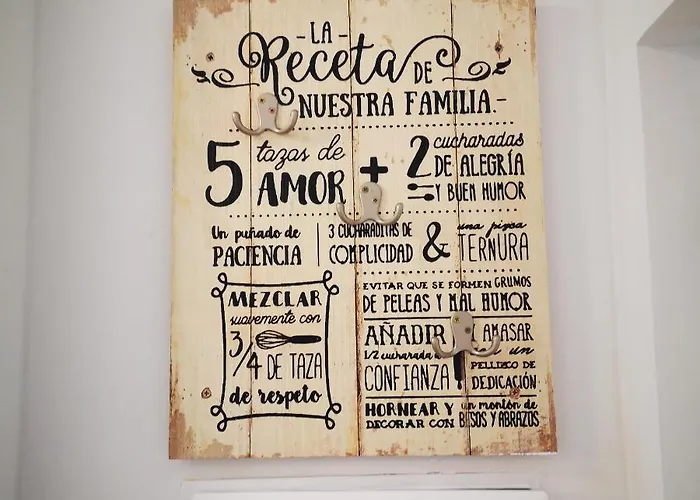 -LA-
Receta DE
NUESTRA FAMILIA.-
5 tazas de
AMOR
+
2 cucharadas
DE ALEGRÍA
Y BUEN HUMOR
Un puñado de
PACIENCIA
3 CUCHARADITAS DE
COMPLICIDAD
&
una pizca
TERNURA
MEZCLAR
suavemente con
3/4 DE TAZA
de respeto
EVITAR QUE SE FORMEN GRUMOS
DE PELEAS Y MAL HUMOR
AÑADIR
1/2 cucharada
CONFIANZA
AMASAR
un
PELLIZCO DE
DEDICACIÓN
HORNEAR Y
DECORAR CON
un montón de
BESOS Y ABRAZOS